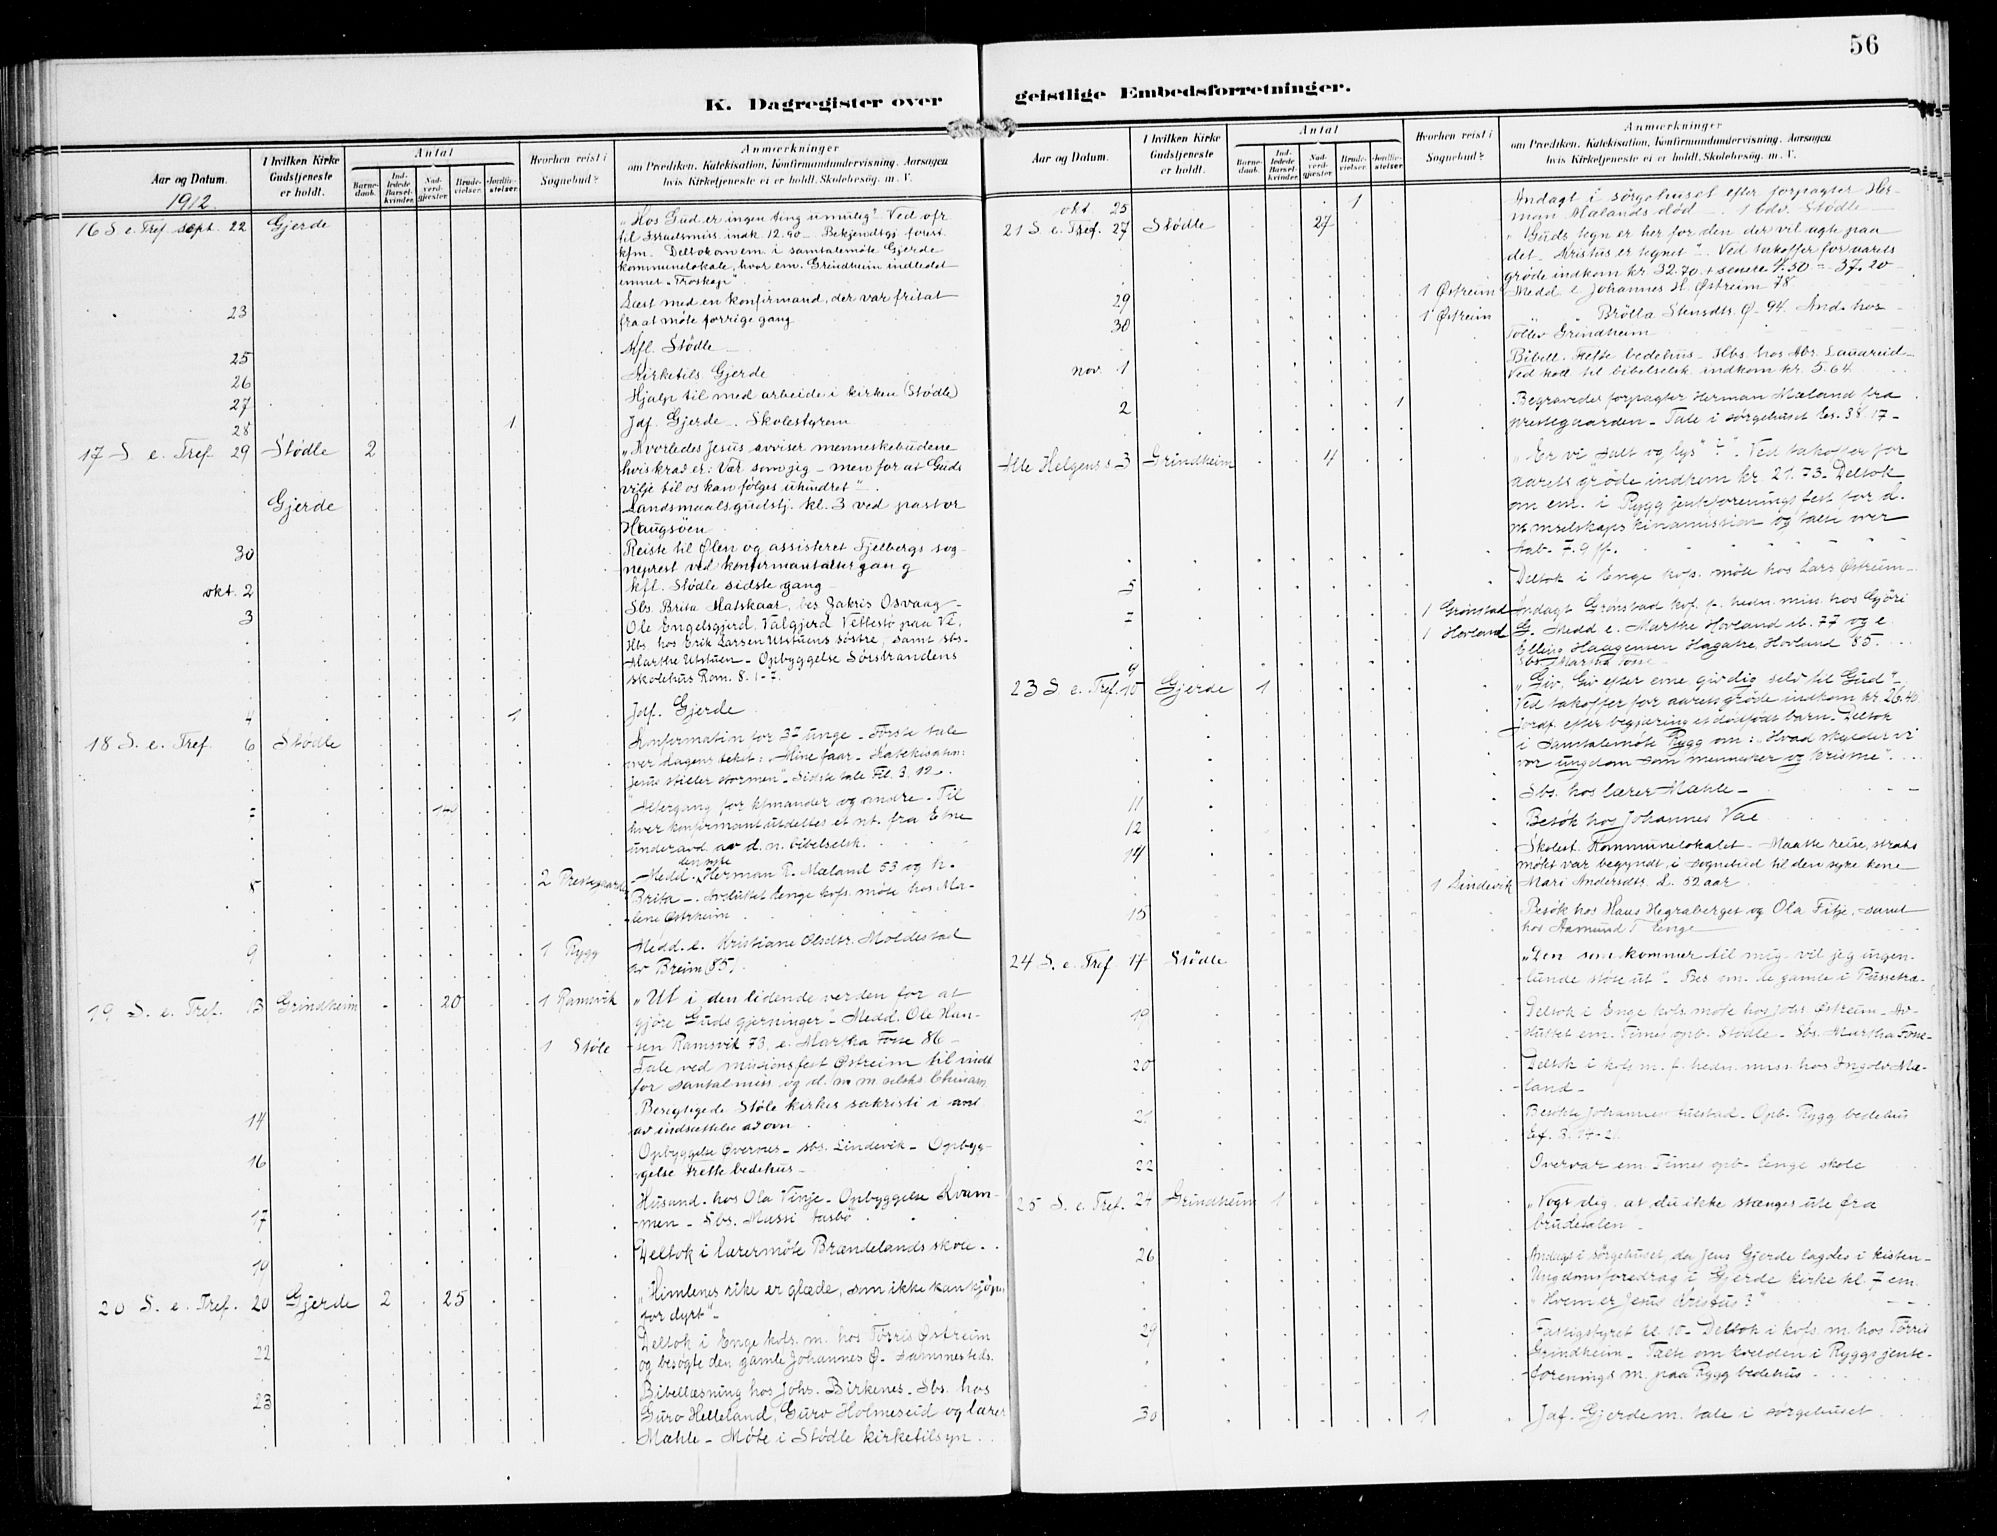 56
K. Dagregister over
Aar og Datum.
I hvilken Kirke Gudstjeneste er holdt.
Antal
Barnedaab.
Indledede Barselkvinder.
Nadverdgjester.
Brudevielser.
Jordfæstelser.
Hvorhen reist i Sognebud?
Anmærkninger
om Prædiken, Katekisation, Konfirmandundervisning, Aarsagen
hvis Kirketjeneste ei er holdt, Skolebesøg, m. V.
1912
16 S. e. Tref. sept. 22 Gjerde „Hos Gud er ingen ting umulig" Ved ofr
til Israelsmiss indk 12.90 - Bekjendtgj. forist.
kfm. Deltok om em. i samtalemöte Gjerde
kommunelokale, hvor em. Grindheim indledet
emnet „Troskap"
23 Læst med en konfirmand, der var fritat
fra at möte forrige gang
25 kfl. Stødle
26 Kirketils. Gjerde
27 Hjalp til med arbeide i kirken (Stødle)
28 1 Jdf. Gjerde. Skolestyrem
17 S. e. Tref 29 Stødle 2 „Hvorledes Jesus avviser menneskebudene
hvis krav er: Vær som jeg – men for at Guds
vilje til os kan følges uhindret"
Gjerde Landsmaalsgudstj. kl. 3 ved pastor
Haugsöen
30 Reiste til Ølen og assisteret Fjelbergs sog-
neprest ved konfirmantaltergang
okt. 2 kfl. Stødle sidste gang
3 Sbs. Brita Matskaar, bes Zakris Osvaag –
Ole Engelsgjerd, Valgjerd Vettestö paa Ve.
Hb. hos Erik Larsen Utstuens söstre, samt sbs.
Marthe Utstuen – Opbyggelse Sörstrandens
skolehus Rom. 8. 1-7.
4 1 Jdf. Gjerde
18 S. e. Tref. 6 Stødle Konfirmation for 37 unge – Förste tale
over dagens tekst: „Mine faar – Katekisation:
Jesus stiller stormen" – Sidste tale Fil. 3. 12.
Altergang for kfmander og andre – Til
hver konfirmant utdeltes et nt. fra Etne
underavd. av d. n. bibelselsk.
8 2 Prestegaarden Medd. den syke Herman R. Mæland 53 og h.
Brita – Avsluttet Enge kofs. möte hos Ma-
lene Østrheim
9 1 Rygg Medd. e. Kristiane Olsdtr. Moldestad
av Breim (85)
19 S. e. Tref. 13 Grindheim 20 1 Ramsvik „Ut i den lidende verden for at
gjöre Guds gjerninger" – Medd. Ole Han-
1 Støle sen Ramsvik 73, e. Martha Fosse 86 –
Tale ved missionsfest Østreim til indt
for santalmiss og d. n. m. selsks. Chinam
14 Besigtigede Støle kirkes sakristi i anl.
av indsættelse av ovn
16 Opbyggelse Överaas – sbs. Lindevik – Opbyg-
gelse Frette bedehus –
17 Husand. hos Ola Vinje – Opbyggelse Kvam-
men – Sbs. Massi Tasbö
19 Deltok i lærermöte Brændelands skole
20 S. e. Tref. 20 Gjerde 2 25 „Himlenes rike er glæde, som ikke kan kjöpes
for dyrt" –
22 Deltok i Enge kofs. m. hos Torris Østreim
og besøgte den gamle Johannes Ø. sammesteds.
23 Bibellæsning hos Johs. Birkenes – Sbs. hos
Guro Helleland, Guro Holmeseid og lærer
Mæhle – Möte i Stødle kirketilsyn
geistlige Embedsforretninger.
Aar og Datum.
I hvilken Kirke Gudstjeneste er holdt.
Antal
Barnedaab.
Indledede Barselkvinder.
Nadverdgjester.
Brudevielser.
Jordfæstelser.
Hvorhen reist i Sognebud?
Anmærkninger
om Prædiken, Katekisation, Konfirmandundervisning, Aarsagen
hvis Kirketjeneste ei er holdt, Skolebesøg, m. V.
okt. 25 1 Andagt i sörgehuset efter forpagter Her-
man Mælands död – 1 bdv. Stødle –
21 S. e. Tref. 27 Stødle 27 „Guds tegn er her for den der vil agte paa
det – Kristus er tegnet" – Ved takoffer for aarets
gröde indkom kr. 32.70 + senere 4.50 = 37.20
29 1 Østreim Medd e Johannes H. Østreim 78
30 1 Østreim Brölla Stensdtr. Ø. 94. And. hos
Tollev Grindheim
nov. 1 Bibell. Tefte bedehus – Hbs. hos Abr. Lauareid –
Ved koll. til bibelselsk. indkom kr. 5.64
2 1 Begravedes forpagter Herman Mæland fra
prestegaarden – Tale i sörgehuset Es. 38.17 –
Alle Helgens s 3 Grindheim 4 „Er vi „salt og lys"?" Ved takoffer for
aarets gröde indkom kr. 21.73 – Deltok
om em. i Rygg jenteforenings fest for d.
n. mselskaps kinamission og talte over
Aab. 7. 9 ff.
5 Deltok i Enge kofs. möte hos Lars Østreim –
7 1 Grönstad Andagt Grönstad kof. f. hedn. miss. hos Gjöri
1 Hovland G. Medd e. Marthe Hovland 77 og e.
Elling Haagensen Hagatre, Hovland 85.
9 Sbs. Martha Fosse
23 S. e. Tref. 10 Gjerde 1 „Giv, Giv efter evne, giv dig selv til Gud" –
Ved takoffer for aarets gröde indkom kr 26.40
Jordf. efter begjæring et dödfödt barn – Deltok
i Samtalemöte Rygg om: „Hvad skylder vi
vor ungdom som mennesker og kristne".
11 Sbs. hos lærer Mæhle –
12 Besök hos Johannes Vae
14 Skolest. Kommunelokalet – Maatte reise, straks
mötet var begyndt, i sognebud til den syke kone
1 Lindevik Mari Andersdtr. L. 52 aar
15 Besök hos Hans Hegraberget og Ola Fitje, samt
hos Aamund T Enge
24 S. e. Tref 17 Stødle „Den som kommer til mig vil jeg ingen-
lunde støte ut". Bes om de gamle i
19 Deltok i Enge kofs. möte hos Johs Østreim – Av-
sluttet em. Times opb. Stødle – Sbs. Martha Fosse –
20 Deltok i kofs m. f. hedn. miss. hos Ingolv Mæ-
land –
21 Besökte Johannes – Opb. Rygg bedehus
Ef. 3. 14-21
22 Overvar em. Times opb. Enge skole
25 S. e. Tref. 24 Grindheim 1 „Vogt dig, at du ikke stænges ute fra
brudesalen –
26 Andagt i sörgehuset da Jens Gjerde lagdes i kisten –
Ungdomsforedrag i Gjerde kirke kl. 7 em.
„Hvem er Jesus Kristus?"
29 Fattigstyret kl. 10 – Deltok i kofs. m. hos Torris
Grindheim – Talte om kvelden i Ryggs jente-
forenings m. paa Rygg bedehus
30 1 Jdf. Gjerde m. tale i sörgehuset